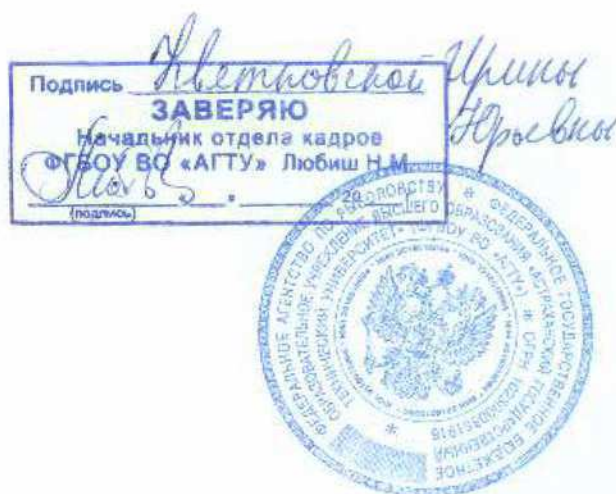 Подпись Кветковской Ирины
Юрьевны
ЗАВЕРЯЮ
Начальник отдела кадров
ФГБОУ ВО «АГТУ» Любиш Н.М.
20
(подпись)
ФЕДЕРАЛЬНОЕ АГЕНТСТВО ПО РЫБОЛОВСТВУ * ФЕДЕРАЛЬНОЕ ГОСУДАРСТВЕННОЕ БЮДЖЕТНОЕ
ОБРАЗОВАТЕЛЬНОЕ УЧРЕЖДЕНИЕ ВЫСШЕГО ОБРАЗОВАНИЯ «АСТРАХАНСКИЙ ГОСУДАРСТВЕННЫЙ
ТЕХНИЧЕСКИЙ УНИВЕРСИТЕТ» (ФГБОУ ВО «АГТУ») * ОГРН 1023000861916